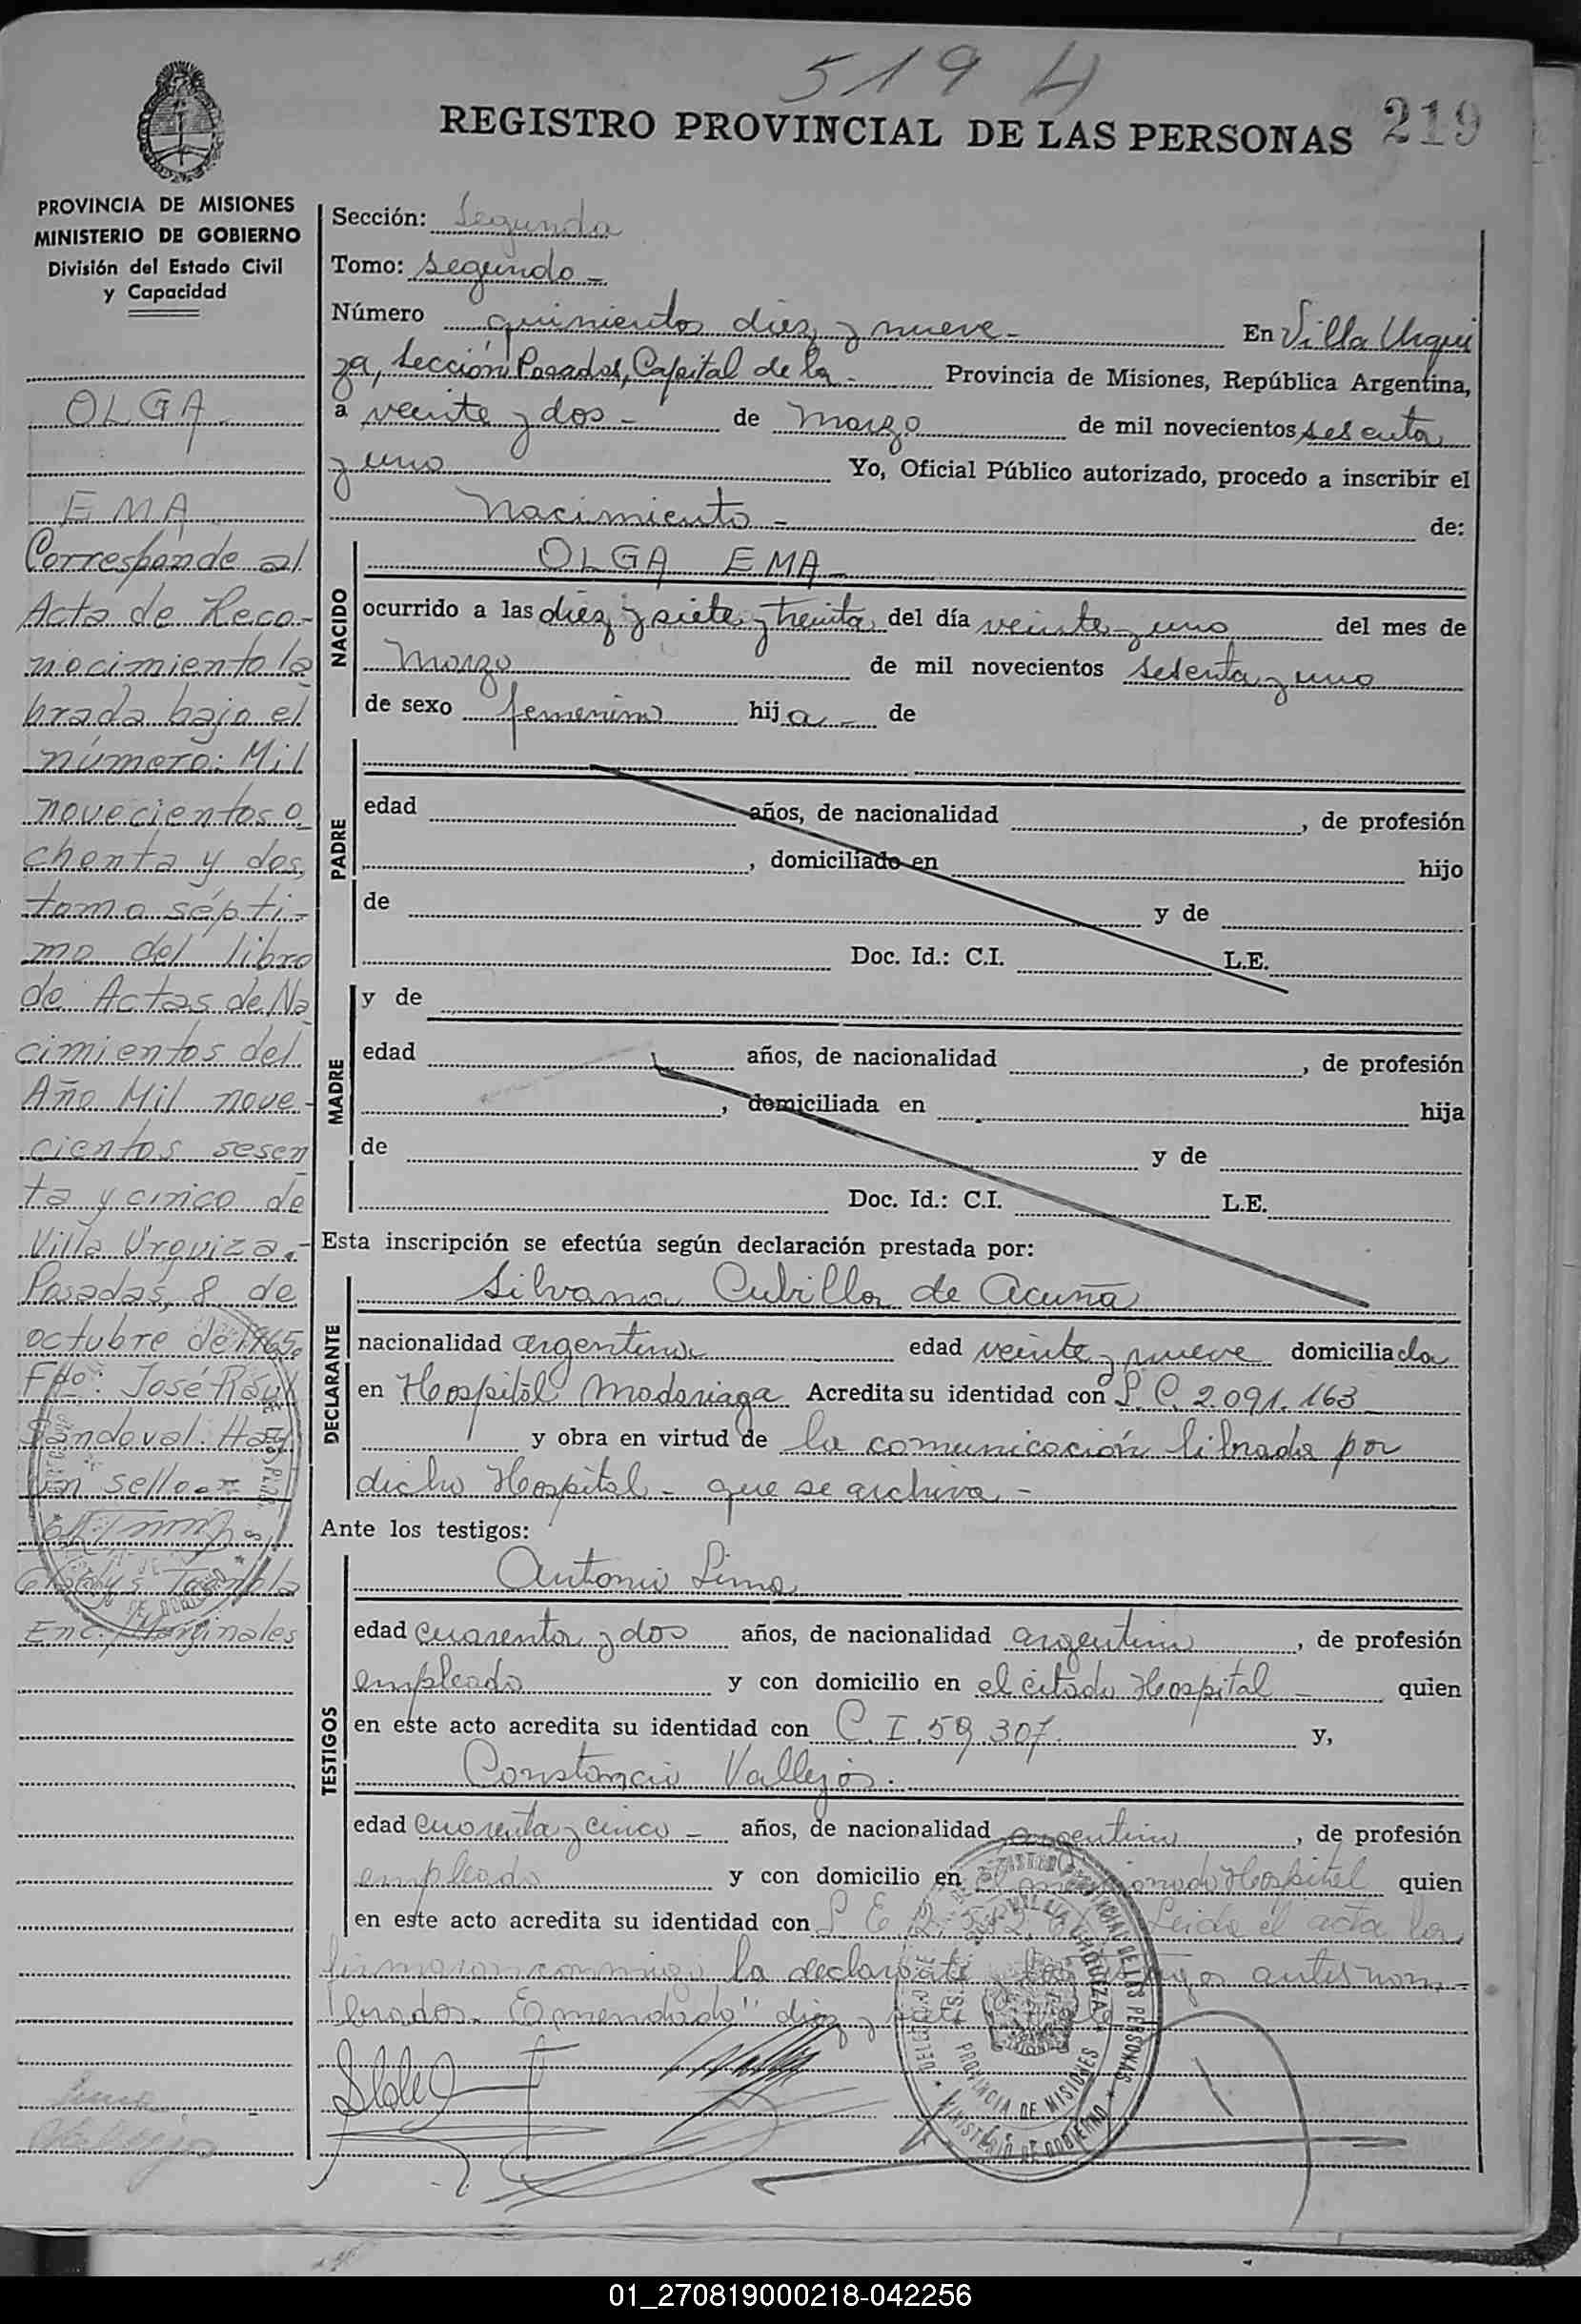 519 H
REGISTRO PROVINCIAL DE LAS PERSONAS 219
PROVINCIA DE MISIONES
MINISTERIO DE GOBIERNO
División del Estado Civil
y Capacidad
OLGA
EMA
Corresponde al
Acta de Reco-
nocimiento la
brada bajo el
número: Mil
novecientos o
chenta y dos,
tomo sépti-
mo del libro
de Actas de Na
cimientos del
Año Mil nove-
cientos sesen
ta y cinco de
Villa Urquiza.-
Posadas, 8 de
octubre de 1965.
Fdo: José Raúl
Sandoval. Hay
un sello.=
Gladys
Enc. Marginales
Sección: Segunda
Tomo: Segundo -
Número quinientos diez y nueve - En Villa Urqui
za, Sección Posadas, Capital de la - Provincia de Misiones, República Argentina,
a veinte y dos - de Marzo de mil novecientos sesenta
y uno Yo, Oficial Público autorizado, procedo a inscribir el
Nacimiento - de:
NACIDO
OLGA EMA
ocurrido a las diez y siete y treinta del día veinte y uno del mes de
Marzo de mil novecientos sesenta y uno
de sexo femenino hija - de
PADRE
edad años, de nacionalidad , de profesión
, domiciliado en hijo
de y de
Doc. Id.: C.I. L.E.
MADRE
y de
edad años, de nacionalidad , de profesión
, domiciliada en hija
de y de
Doc. Id.: C.I. L.E.
Esta inscripción se efectúa según declaración prestada por:
DECLARANTE
Silvana Cubilla de Acuña
nacionalidad argentina edad veinte y nueve domiciliada
en Hospital Madariaga Acredita su identidad con L.C. 2.091.163
y obra en virtud de la comunicación librada por
dicho Hospital - que se archiva -
Ante los testigos:
TESTIGOS
Antonio Lima
edad cuarenta y dos años, de nacionalidad argentino , de profesión
empleado y con domicilio en el citado Hospital - quien
en este acto acredita su identidad con C.I. 59.307. y,
Constancio Vallejos.
edad cuarenta y cinco - años, de nacionalidad argentino , de profesión
empleado y con domicilio en el mencionado Hospital quien
en este acto acredita su identidad con L.E. Leida el acta la
firmaron conmigo la declarante y los testigos antes nom-
brados. Enmendado "diez y siete"
PROVINCIA DE MISIONES
MINISTERIO DE GOBIERNO
01_270819000218-042256